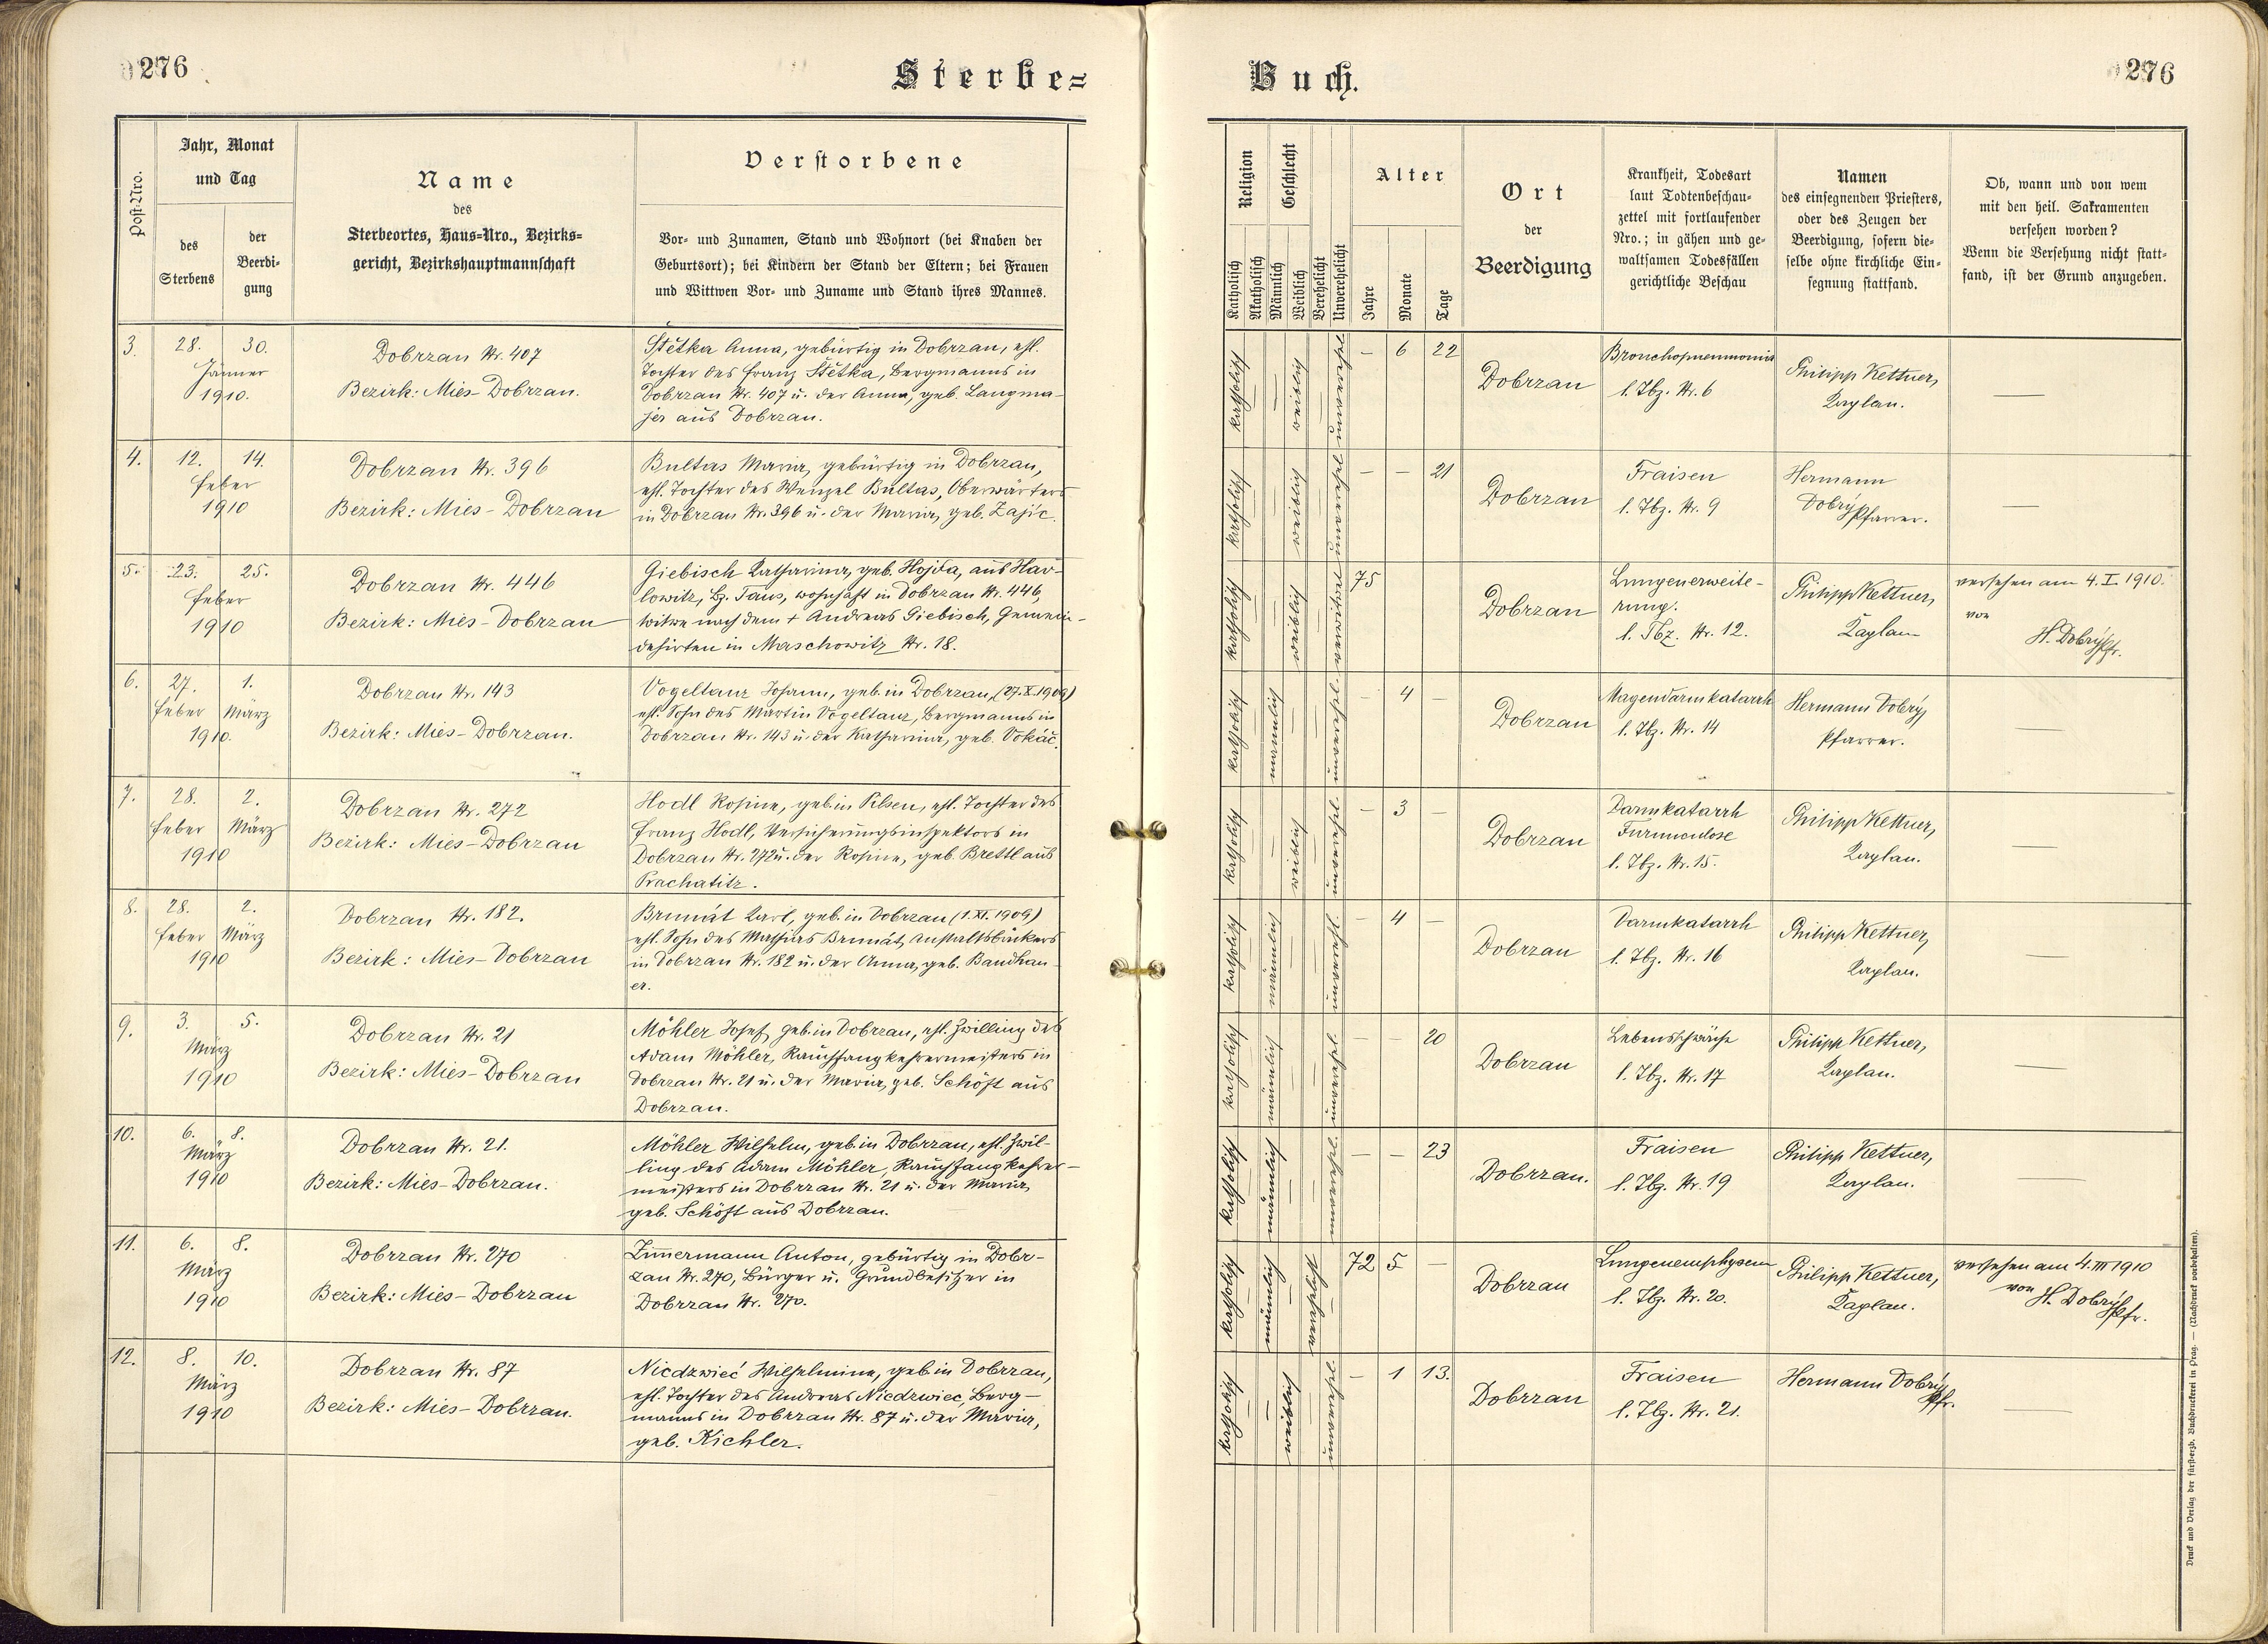 276
Sterbe=
Post-Nro.
Jahr, Monat
und Tag
des
Sterbens
der
Beerdi-
gung
Name
des
Sterbeortes, Haus=Nro., Bezirks=
gericht, Bezirkshauptmannschaft
Verstorbene
Vor- und Zunamen, Stand und Wohnort (bei Knaben der
Geburtsort); bei Kindern der Stand der Eltern; bei Frauen
und Wittwen Vor- und Zuname und Stand ihres Mannes.
3.
28. 30.
Jänner
1910.
Dobrzan Nr. 407
Bezirk: Mies-Dobrzan.
Štětka Anna, gebürtig in Dobrzan, ehl.
Tochter des Franz Štětka, Bergmanns in
Dobrzan Nr. 407 u. der Anna, geb. Langma-
jer aus Dobrzan.
4.
12. 14.
Feber
1910
Dobrzan Nr. 396
Bezirk: Mies-Dobrzan
Bultas Maria, gebürtig in Dobrzan,
ehl. Tochter des Wenzel Bultas, Oberwärters
in Dobrzan Nr. 396 u. der Maria, geb. Zajíc.
5.
23. 25.
Feber
1910
Dobrzan Nr. 446
Bezirk: Mies-Dobrzan
Giebisch Katharina, geb. Hojda, aus Haw-
lowitz, Bz. Taus, wohnhaft in Dobrzan Nr. 446,
Witwe nach dem + Andreas Giebisch, Gemein-
dehirten in Maschowitz Nr. 18.
6.
27. 1.
Feber März
1910.
Dobrzan Nr. 143
Bezirk: Mies-Dobrzan.
Vogeltanz Johann, geb. in Dobrzan, (27.X.1909)
ehl. Sohn des Martin Vogeltanz, Bergmanns in
Dobrzan Nr. 143 u. der Katharina, geb. Vokáč.
7.
28. 2.
Feber März
1910
Dobrzan Nr. 272
Bezirk: Mies-Dobrzan
Hodl Rosine, geb. in Pilsen, ehl. Tochter des
Franz Hodl, Versicherungsinspektors in
Dobrzan Nr. 272 u. der Rosine, geb. Brettl aus
Prachatitz.
8.
28. 2.
Feber März
1910
Dobrzan Nr. 182.
Bezirk: Mies-Dobrzan
Brunát Karl, geb. in Dobrzan (1.XI.1909)
ehl. Sohn des Mathias Brunát, Anstaltsbäckers
in Dobrzan Nr. 182 u. der Anna, geb. Bandhau-
er.
9.
3. 5.
März
1910
Dobrzan Nr. 21
Bezirk: Mies-Dobrzan
Möhler Josef, geb. in Dobrzan, ehl. Zwilling des
Adam Möhler, Rauchfangkehrermeisters in
Dobrzan Nr. 21 u. der Maria, geb. Schöft aus
Dobrzan.
10.
6. 8.
März
1910
Dobrzan Nr. 21.
Bezirk: Mies-Dobrzan.
Möhler Wilhelm, geb. in Dobrzan, ehl. Zwil-
ling des Adam Möhler, Rauchfangkehrer-
meisters in Dobrzan Nr. 21 u. der Maria,
geb. Schöft aus Dobrzan.
11.
6. 8.
März
1910
Dobrzan Nr. 270
Bezirk: Mies-Dobrzan
Zimmermann Anton, gebürtig in Dobr-
zan Nr. 270, Bürger u. Grundbesitzer in
Dobrzan Nr. 270.
12.
8. 10.
März
1910
Dobrzan Nr. 87
Bezirk: Mies-Dobrzan.
Niedzwieć Wilhelmine, geb. in Dobrzan,
ehl. Tochter des Andreas Niedzwiec, Berg-
manns in Dobrzan Nr. 87 u. der Maria,
geb. Kichler.
Buch.
276
Religion
Katholisch
Akatholisch
Geschlecht
Männlich
Weiblich
Verehelicht
Unverehelicht
Alter
Jahre
Monate
Tage
Ort
der
Beerdigung
Krankheit, Todesart
laut Todtenbeschau-
zettel mit fortlaufender
Nro.; in gähen und ge-
waltsamen Todesfällen
gerichtliche Beschau
Namen
des einsegnenden Priesters,
oder des Zeugen der
Beerdigung, sofern die-
selbe ohne kirchliche Ein-
segnung stattfand.
Ob, wann und von wem
mit den heil. Sakramenten
versehen worden?
Wenn die Versehung nicht statt-
fand, ist der Grund anzugeben.
katholisch — weiblich — unverehel.
— 6 22
Dobrzan
Bronchopneumonie
l. Tbz. Nr. 6
Philipp Kettner,
Kaplan.
—
katholisch — weiblich — unverehel.
— — 21
Dobrzan
Fraisen
l. Tbz. Nr. 9
Hermann
Dobrý Pfarrer.
—
katholisch — weiblich — verwitwet
75
Dobrzan
Lungenerweite-
rung.
l. Tbz. Nr. 12.
Philipp Kettner,
Kaplan
versehen am 4.I.1910.
von
H. Dobrý Pfr.
katholisch — männlich — unverehel.
— 4 —
Dobrzan
Magendarmkatarrh
l. Tbz. Nr. 14
Hermann Dobrý,
Pfarrer.
—
katholisch — weiblich — unverehel.
— 3 —
Dobrzan
Darmkatarrh
Furunculose
l. Tbz. Nr. 15.
Philipp Kettner,
Kaplan.
—
katholisch — männlich — unverehl.
— 4 —
Dobrzan
Darmkatarrh
l. Tbz. Nr. 16
Philipp Kettner,
Kaplan.
—
katholisch — männlich — unverehel.
— — 20
Dobrzan
Lebensschwäche
l. Tbz. Nr. 17
Philipp Kettner,
Kaplan.
—
katholisch — männlich — unverehel.
— — 23
Dobrzan.
Fraisen
l. Tbz. Nr. 19
Philipp Kettner,
Kaplan.
—
katholisch — männlich — verehelicht
72 5 —
Dobrzan
Lungenemphysem
l. Tbz. Nr. 20.
Philipp Kettner,
Kaplan.
versehen am 4.III 1910
von H. Dobrý Pfr.
katholisch — weiblich — unverehel.
— 1 13.
Dobrzan
Fraisen
l. Tbz. Nr. 21.
Hermann Dobrý
Pfr.
—
Druck und Verlag der fürsterzb. Buchdruckerei in Prag. — (Nachdruck vorbehalten).